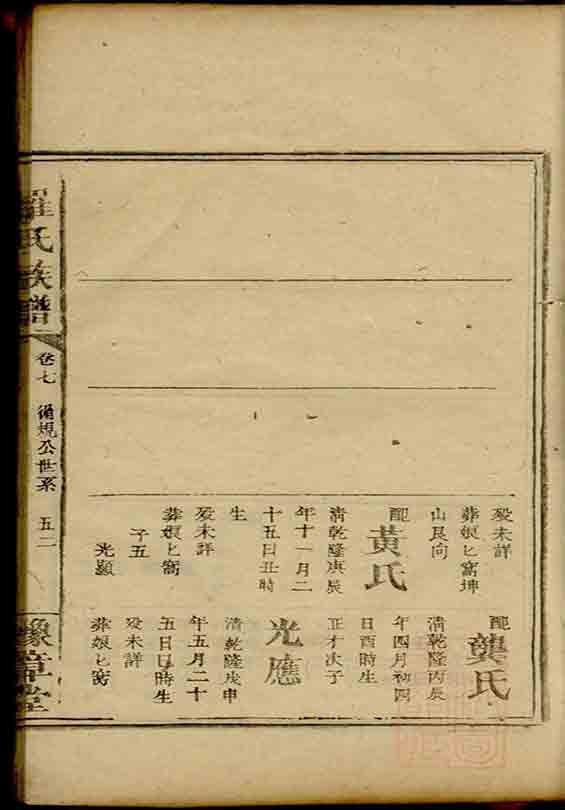 歿未詳
葬娘匕窩坤
山艮向
配黃氏
清乾隆庚辰
年十一月二
十五日丑時
生
歿未詳
葬娘匕窩
子五
光顯
配龔氏
清乾隆丙辰
年四月初四
日酉時生
正才次子
光應
清乾隆庚申
年五月二十
五日巳時生
歿未詳
葬娘匕窩
羅氏族譜
卷七 循規公世系 五二
豫章堂